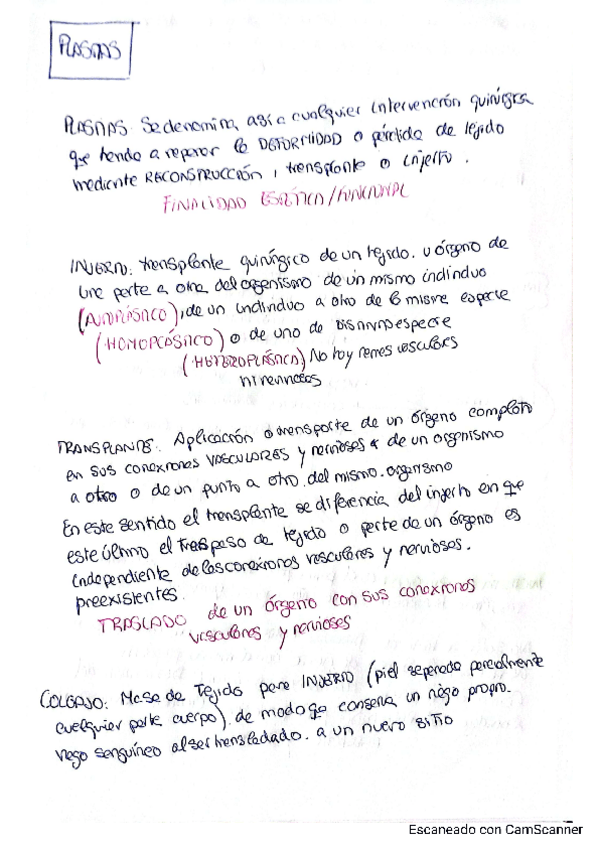 PLASTIAS
PLASTIAS: Se denomina así a cualquier intervención quirúrgica
que tiende a reparar la DEFORMIDAD o pérdida de tejido
mediante RECONSTRUCCIÓN, transplante o injerto.
FINALIDAD ESTÉTICA/FUNCIONAL
INJERTO: transplante quirúrgico de un tejido u órgano de
una parte a otra del organismo de un mismo individuo
(AUTOPLÁSTICO), de un individuo a otro de la misma especie
(HOMOPLÁSTICO) o de uno de distinta especie
(HETEROPLÁSTICA) No hay vasculares
ni nerviosas
TRANSPLANTES: Aplicación o transporte de un órgano completo
en sus conexiones VASCULARES y nerviosas de un organismo
a otro o de un punto a otro del mismo organismo
En este sentido el transplante se diferencia del injerto en que
este último el traspaso de tejido o parte de un órgano es
independiente de las conexiones vasculares y nerviosas.
preexistentes.
TRASLADO de un órgano con sus conexiones
vasculares y nerviosas
COLGAJO: Masa de Tejido para INJERTO (piel separada parcialmente
cualquier parte cuerpo) de modo q conserva un riego propio.
riego sanguíneo al ser transladado. a un nuevo sitio
Escaneado con CamScanner